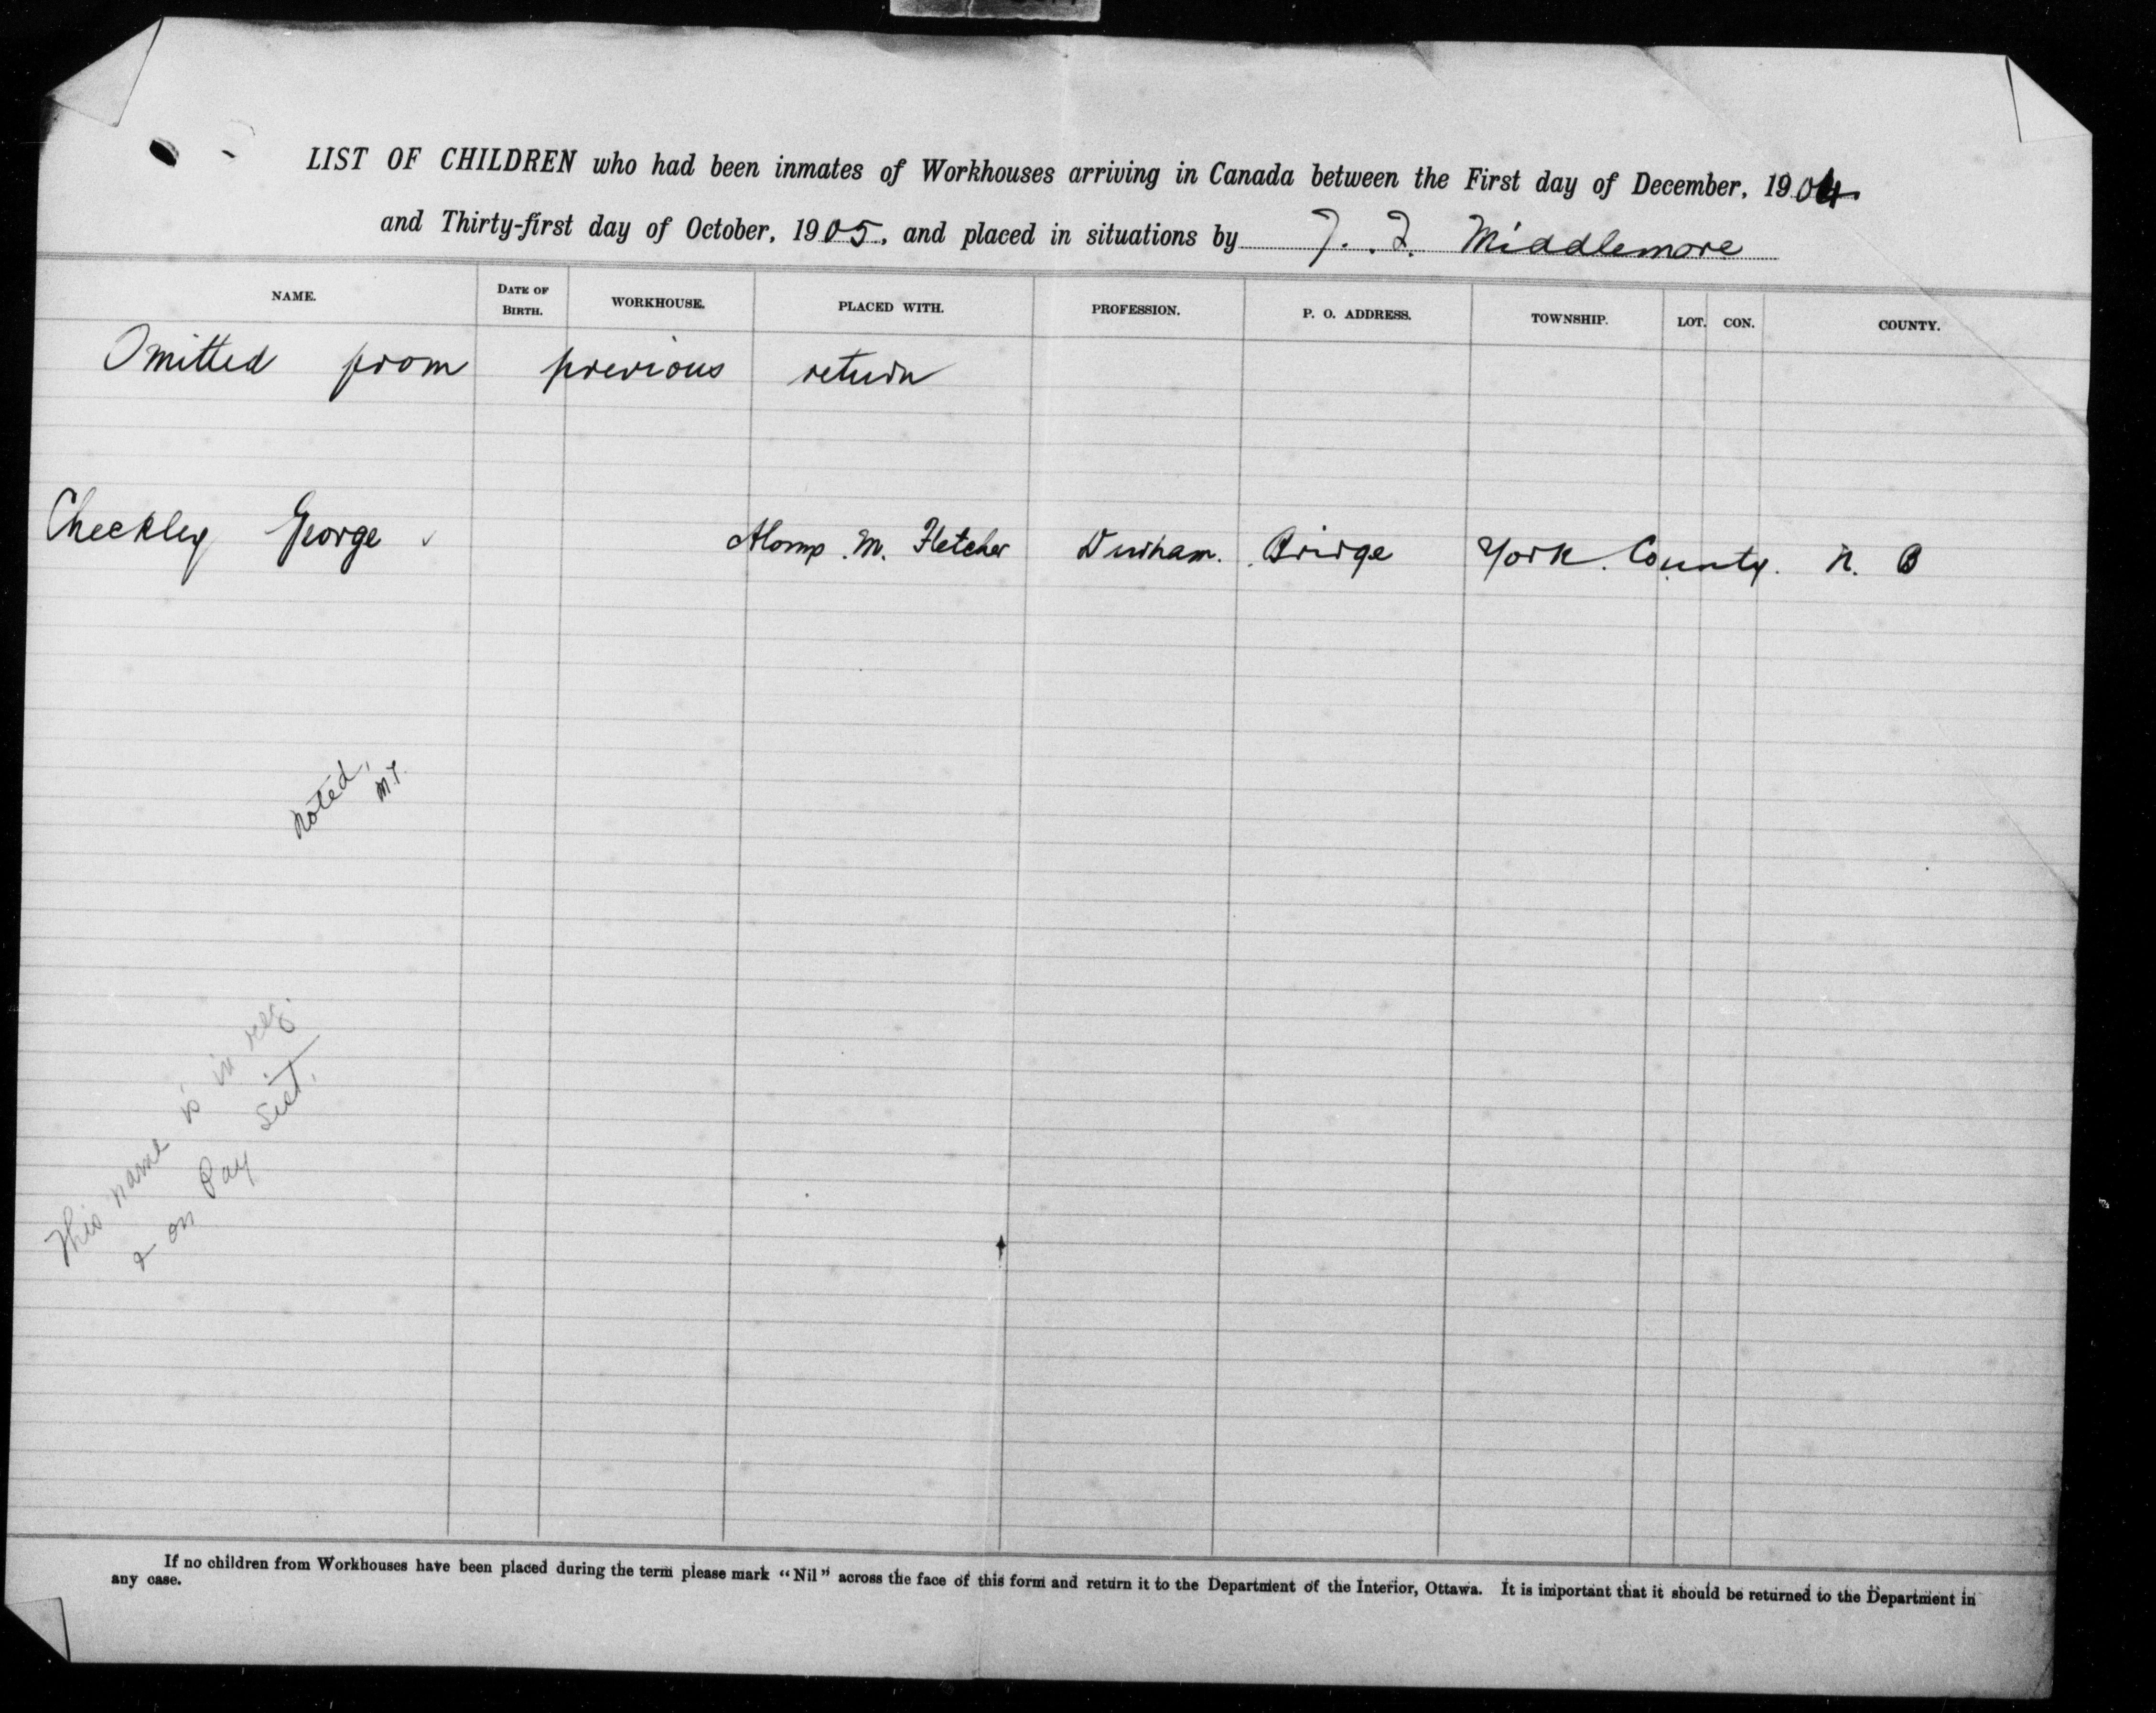 LIST OF CHILDREN who had been inmates of Workhouses arriving in Canada between the First day of December, 1904
and Thirty-first day of October, 1905, and placed in situations by J. T. Middlemore
NAME. DATE OF BIRTH. WORKHOUSE. PLACED WITH. PROFESSION. P. O. ADDRESS. TOWNSHIP. LOT. CON. COUNTY.
Omitted from previous return
Checkley George M. Fletcher Durham. Bridge York. County. N. B
Noted,
M.T.
This name is in reg.
& on Pay List.
If no children from Workhouses have been placed during the term please mark "Nil" across the face of this form and return it to the Department of the Interior, Ottawa. It is important that it should be returned to the Department in
any case.